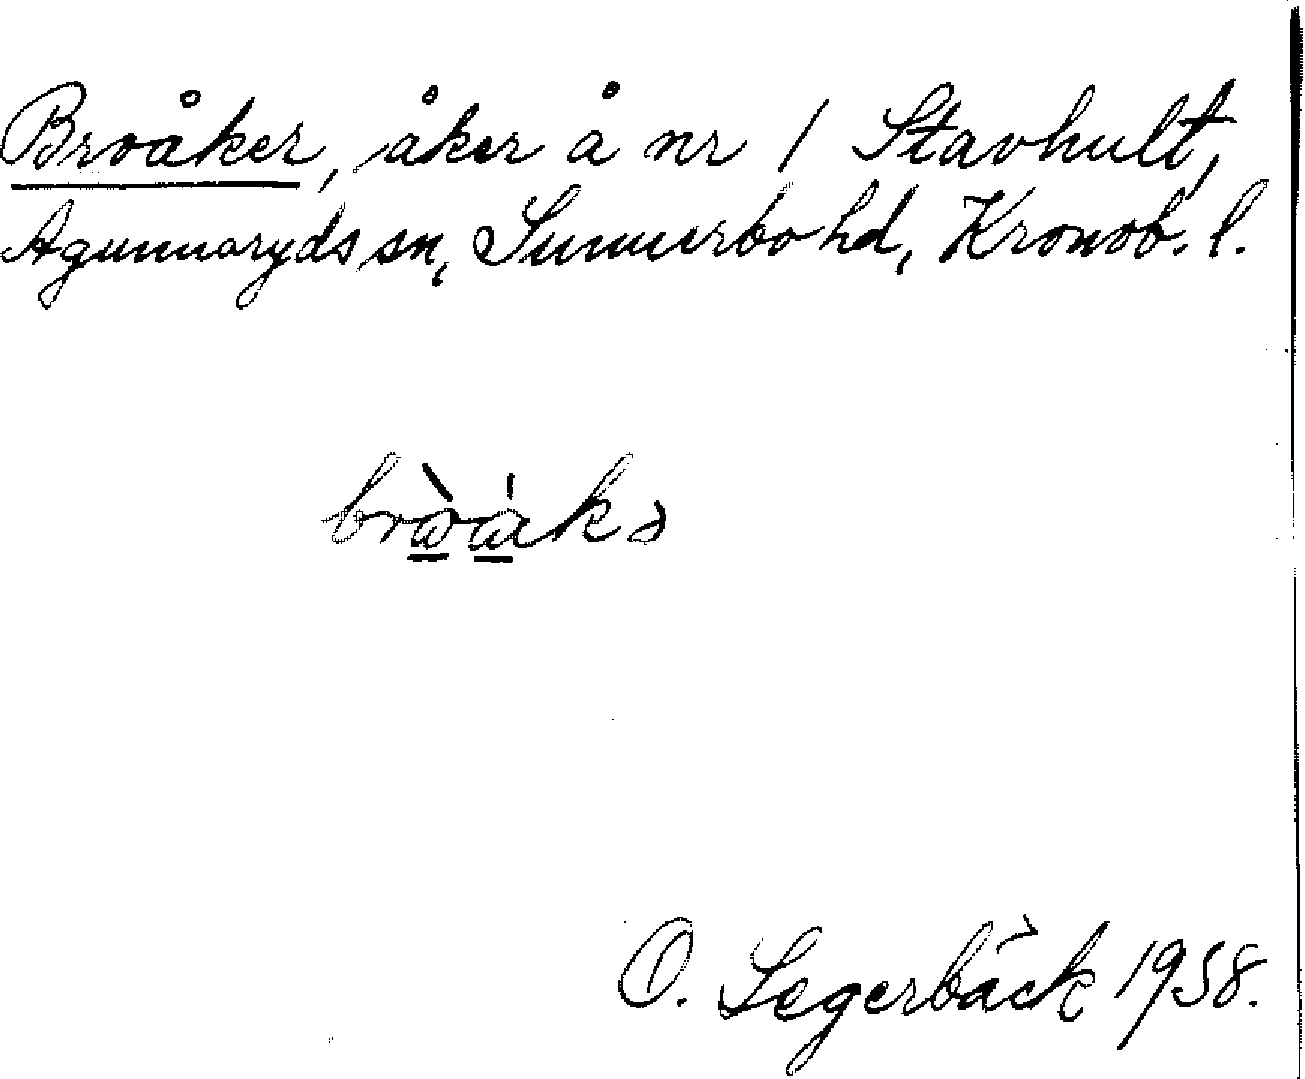 Broåker, åker å nr 1 Stavhult,
Agunnaryds sn, Sunnerbo hd, Kronob. l.
O. Segerbäck 1958.